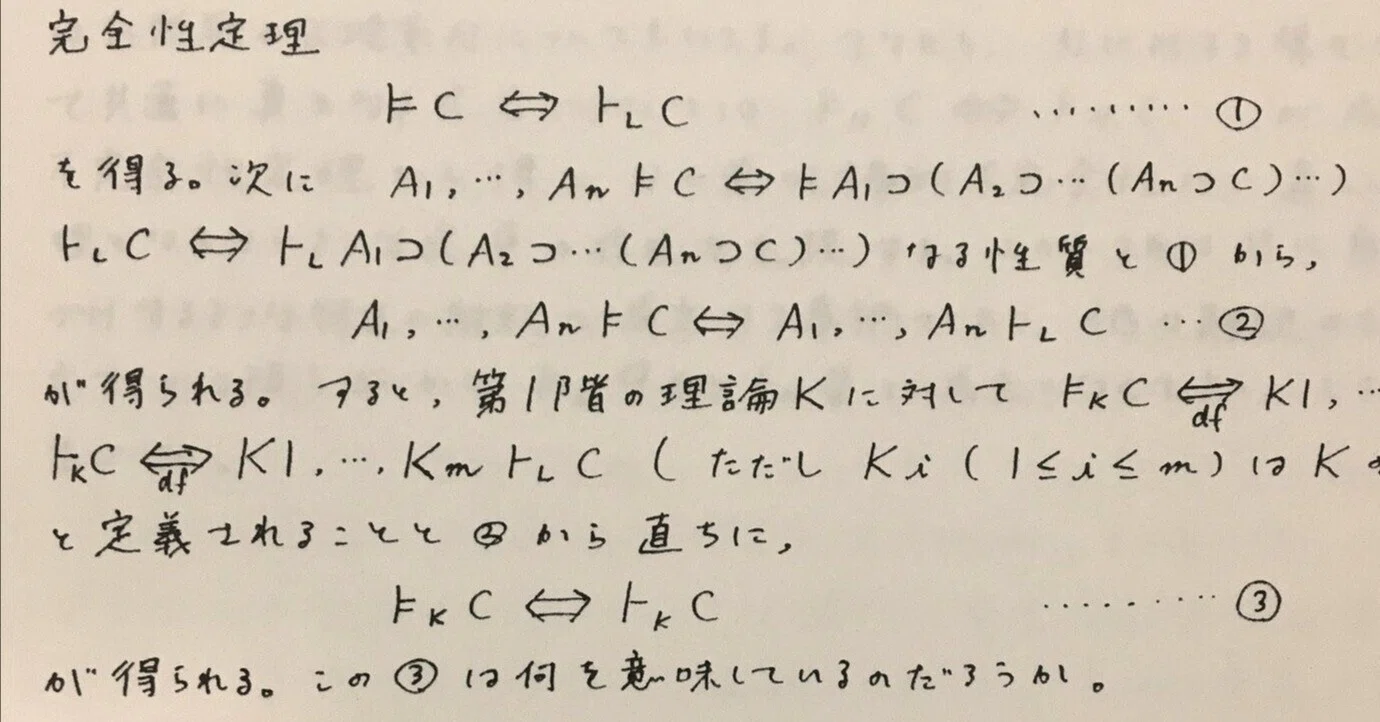 完全性定理
⊨ C ⇔ ⊢L C ……… ①
を得る。次に A1, …, An ⊨ C ⇔ ⊨ A1⊃(A2⊃…(An⊃C)…)
⊢L C ⇔ ⊢L A1⊃(A2⊃…(An⊃C)…) なる性質と①から,
A1, …, An ⊨ C ⇔ A1, …, An ⊢L C …②
が得られる。すると, 第1階の理論Kに対して ⊨K C ⇔df K1, …
⊢K C ⇔df K1, …, Km ⊢L C (ただし Ki (1≤i≤m) は K
と定義されることと②から直ちに,
⊨K C ⇔ ⊢K C ……… ③
が得られる。この③は何を意味しているのだろうか。